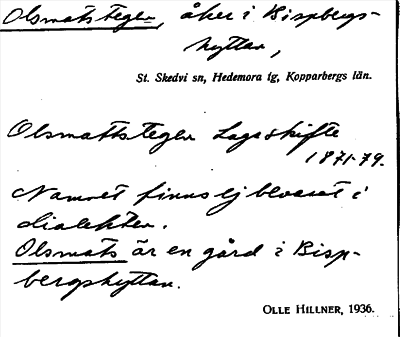 Olsmatstegen, åker i Bispbergs-
hyttan,
St. Skedvi sn, Hedemora tg, Kopparbergs län.
Olsmattstegen Lagaskifte
1871-79.
Namnet finns ej bevarat i
dialekten.
Olsmats är en gård i Bisp-
bergshyttan.
OLLE HILLNER, 1936.